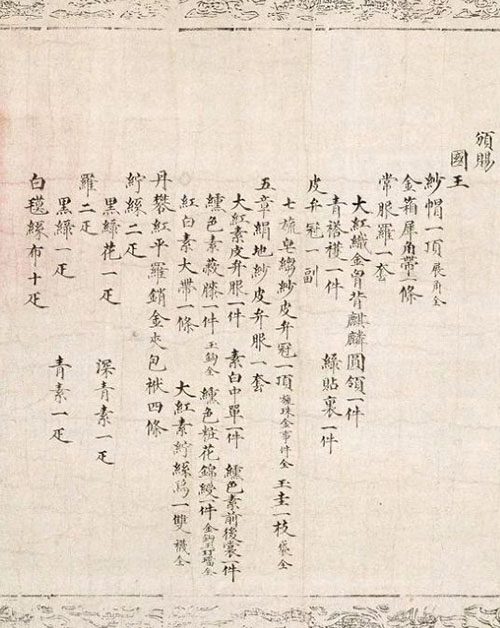 頒賜
國王
紗帽一頂 展角全
金箱犀角帶一條
常服羅一套
大紅織金胷背麒麟圓領一件
青褡𧞤一件 綠貼裏一件
皮弁冠一副
七旒皂縐紗皮弁冠一頂 旒珠金事件全 玉圭一枝 袋全
五章絹地紗皮弁服一套
大紅素皮弁服一件 素白中單一件 纁色素前後裳一件
纁色素蔽膝一件 玉鈎全 纁色粧花錦綬一件 金鈎玉玎璫全
紅白素大帶一條 大紅素紵絲舄一雙 襪全
丹礬紅平羅銷金夾包袱四條
紵絲二疋
黑綠花一疋 深青素一疋
羅二疋
黑綠一疋 青素一疋
白氁絲布十疋